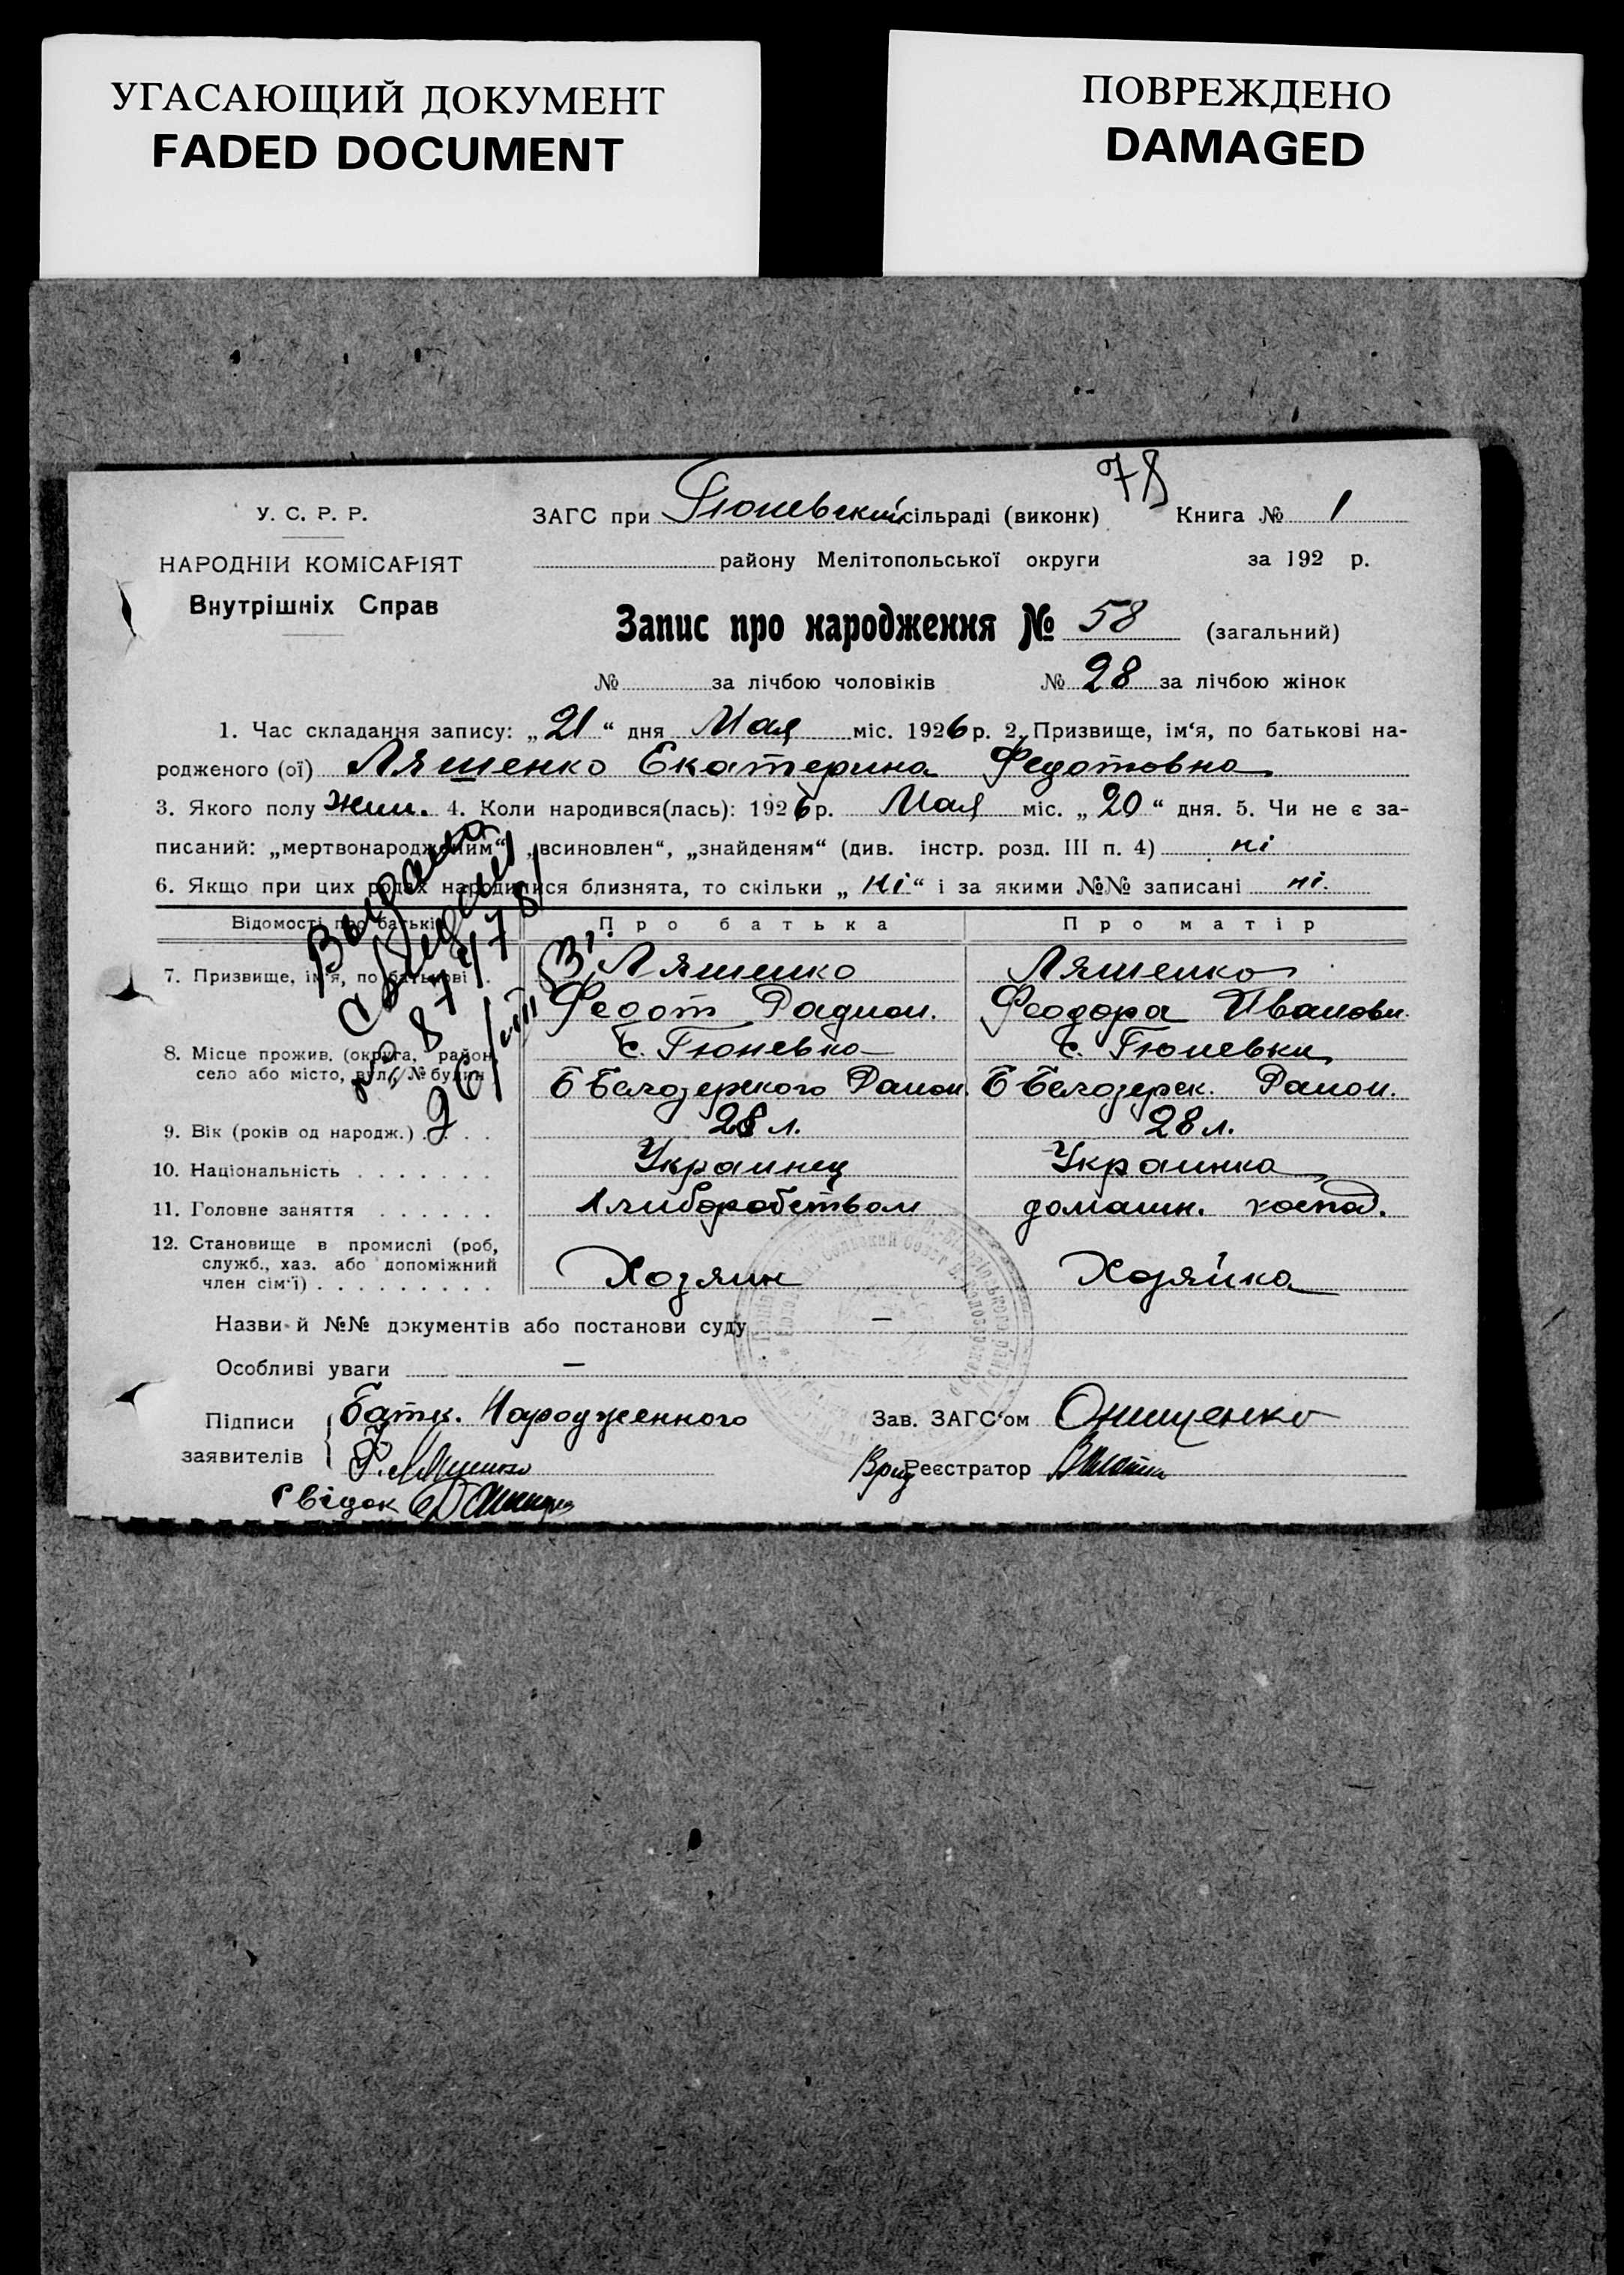 УГАСАЮЩИЙ ДОКУМЕНТ
FADED DOCUMENT
ПОВРЕЖДЕНО
DAMAGED
78
У. С. Р. Р.
НАРОДНІЙ КОМІСАРІЯТ
Внутрішніх Справ
ЗАГС при Гюневский сільраді (виконк) Книга № 1
району Мелітопольської округи за 192 р.
Запис про народження № 58 (загальний)
№ за лічбою чоловіків № 28 за лічбою жінок
1. Час складання запису: „21“ дня Мая міс. 1926 р. 2. Призвище, ім‘я, по батькові на-
родженого (ої) Ляшенко Екатерина Федотовна
3. Якого полу жин. 4. Коли народився(лась): 1926 р. Мая міс. „20“ дня. 5. Чи не є за-
писаний: „мертвонародженим“ „всиновлен“, „знайденям“ (див. інстр. розд. III п. 4) ні
6. Якщо при цих родах народилися близнята, то скільки „ні“ і за якими №№ записані ні.
Відомості про батьків Про батька Про матір
7. Призвище, ім‘я, по батькові Ляшенко Ляшенко
Федот Радион. Феодора Иванови.
8. Місце прожив. (округа, район, с. Гюневка с. Гюневки
село або місто, вул., № будин Б Белозерского Район. Б Белозерск. Район.
9. Вік (років од народж.) . . . . 28 л. 28 л.
10. Національність . . . . . . . Украинец Украинка
11. Головне заняття . . . . . . Хлиборобством домашн. господ.
12. Становище в промислі (роб,
служб., хаз. або допоміжний
член сім‘ї) . . . . . . . . . Хозяин Хозяйка
Выдано
Назви й №№ документів або постанови суду —
Особливі уваги —
Підписи Батк. Народженного Зав. ЗАГС‘ом Онищенко
заявителів Ф. Ляшенко Врид Реєстратор
Свідок